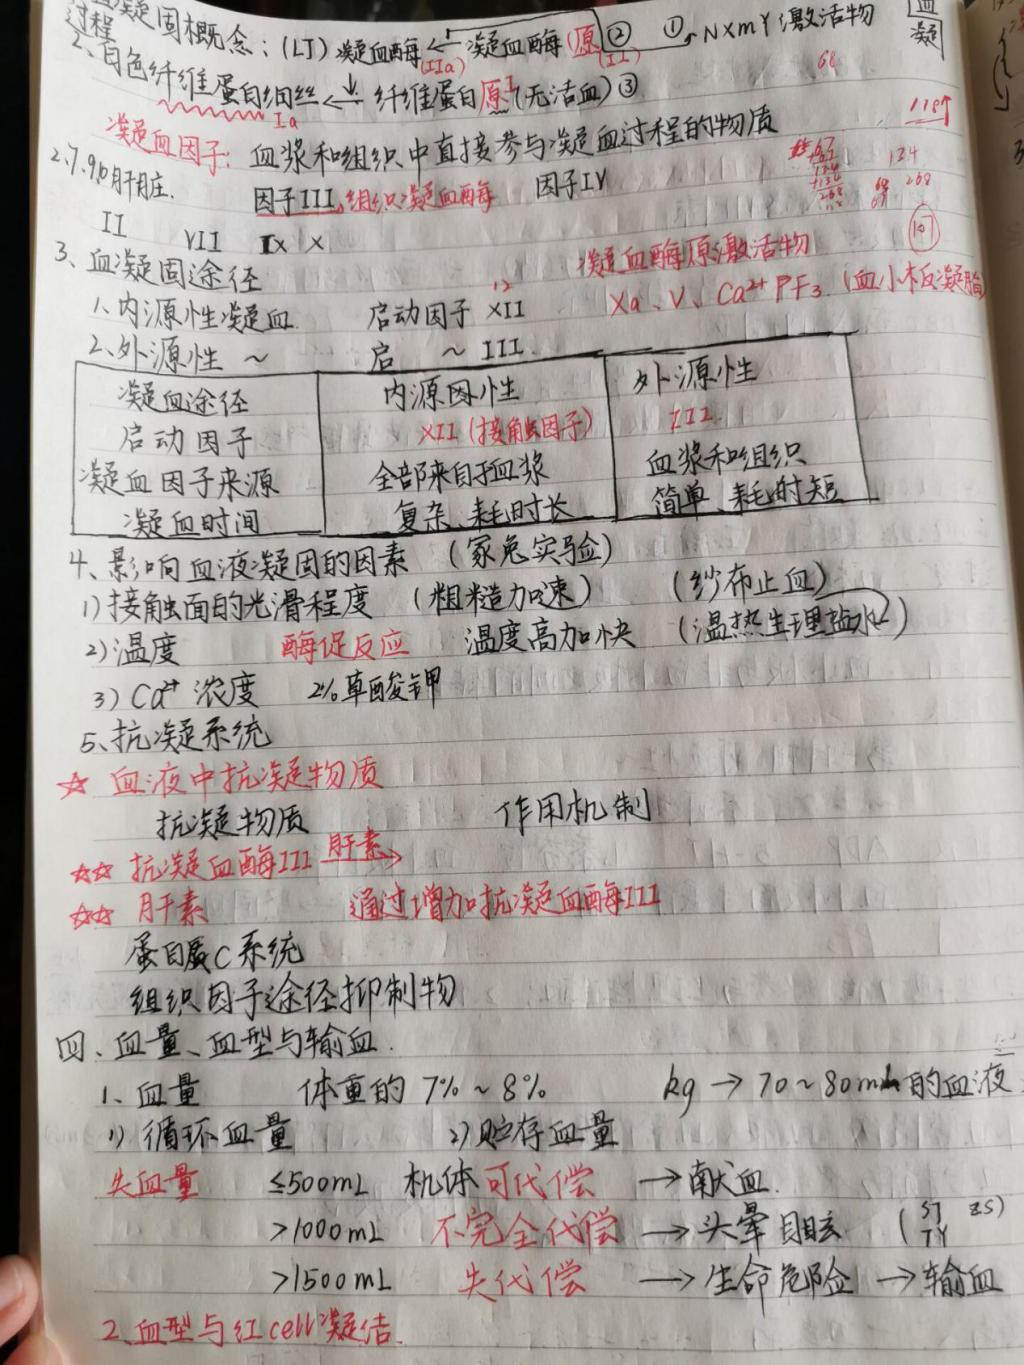 凝固概念：(LT) 凝血酶(IIa) ← 凝血酶原(II) ② ① NXMY激活物
血凝
过程
2、白色纤维蛋白细丝 Ia ← 纤维蛋白原I (无活血) ③
68
118个
凝血因子：血浆和组织中直接参与凝血过程的物质
134
2.7.9.10肝脏. 因子III 组织凝血酶 因子IV
268
II VII IX X
101
3、血凝固途径 凝血酶原激活物
1、内源性凝血 启动因子 XII 12 Xa、V、Ca2+ PF3.(血小板凝脂
2、外源性 ～ 启 ～ III.
凝血途径 内源因性 外源性
启动因子 XII (接触因子) III
凝血因子来源 全部来自于血浆 血浆和组织
凝血时间 复杂、耗时长 简单、耗时短
4、影响血液凝固的因素 (家兔实验)
1)接触面的光滑程度 (粗糙加速) (纱布止血)
2)温度 酶促反应 温度高加快 (温热生理盐水)
3)Ca2+浓度 2%草酸钾
5、抗凝系统
☆ 血液中抗凝物质
抗凝物质 作用机制
☆☆ 抗凝血酶III 肝素→
☆☆ 肝素 通过增加抗凝血酶III
蛋白质C系统
组织因子途径抑制物
四、血量、血型与输血.
1、血量 体重的 7%～8% kg → 70～80mL的血液
1)循环血量 2)贮存血量
失血量 ≤500mL 机体可代偿 → 献血.
>1000mL 不完全代偿 → 头晕目眩 (ST ZS)
TY
>1500mL 失代偿 → 生命危险 → 输血
2、血型与红cell凝结.